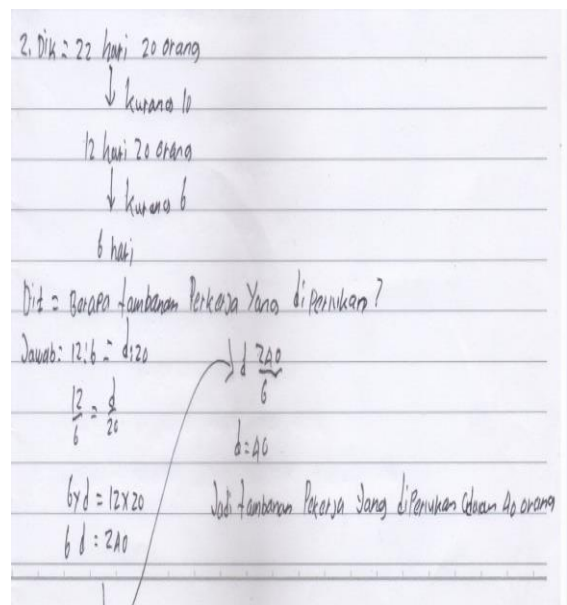 2. Dik = 22 hari 20 orang
↓ kurang 10
12 hari 20 orang
↓ kurang 6
6 hari
Dit = Berapa tambanan Perkerja Yang diperlukan?
Jawab: 12:6 = d:20
12/6 = d/20
6xd = 12x20
6d = 240
d 240/6
d = 40
Jadi tambanan Pekerja Yang diperlukan adalah 40 orang